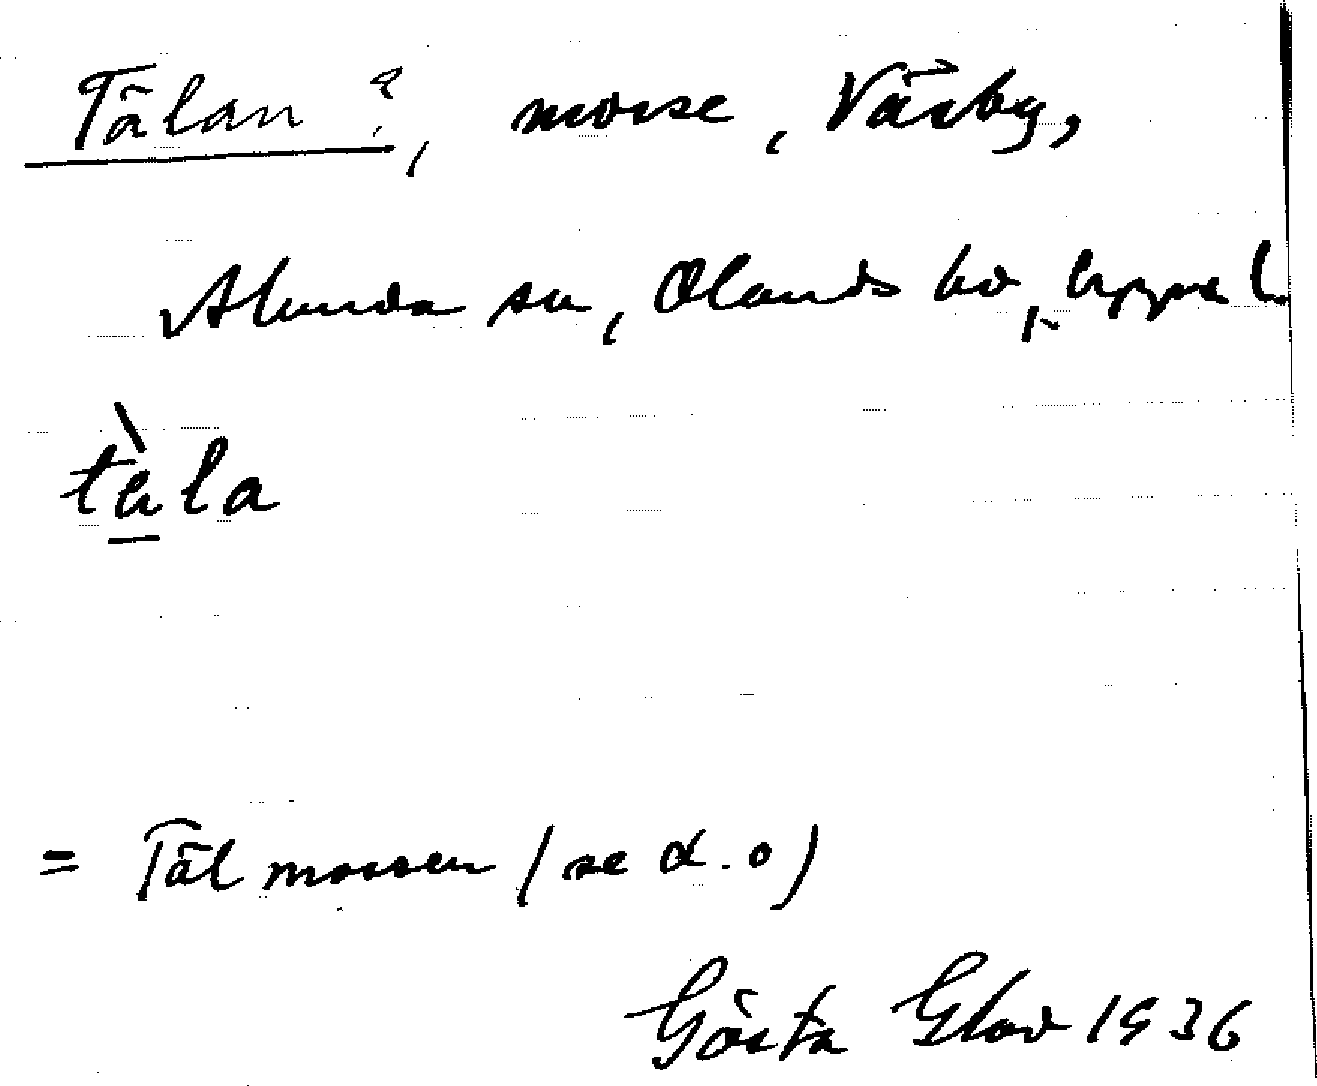 Tälan?, mosse, Väsby,
Alunda sn, Olands hd, Uppsal.
tạ̀la
= Tälmossen (se d. o)
Gösta Elov 1936